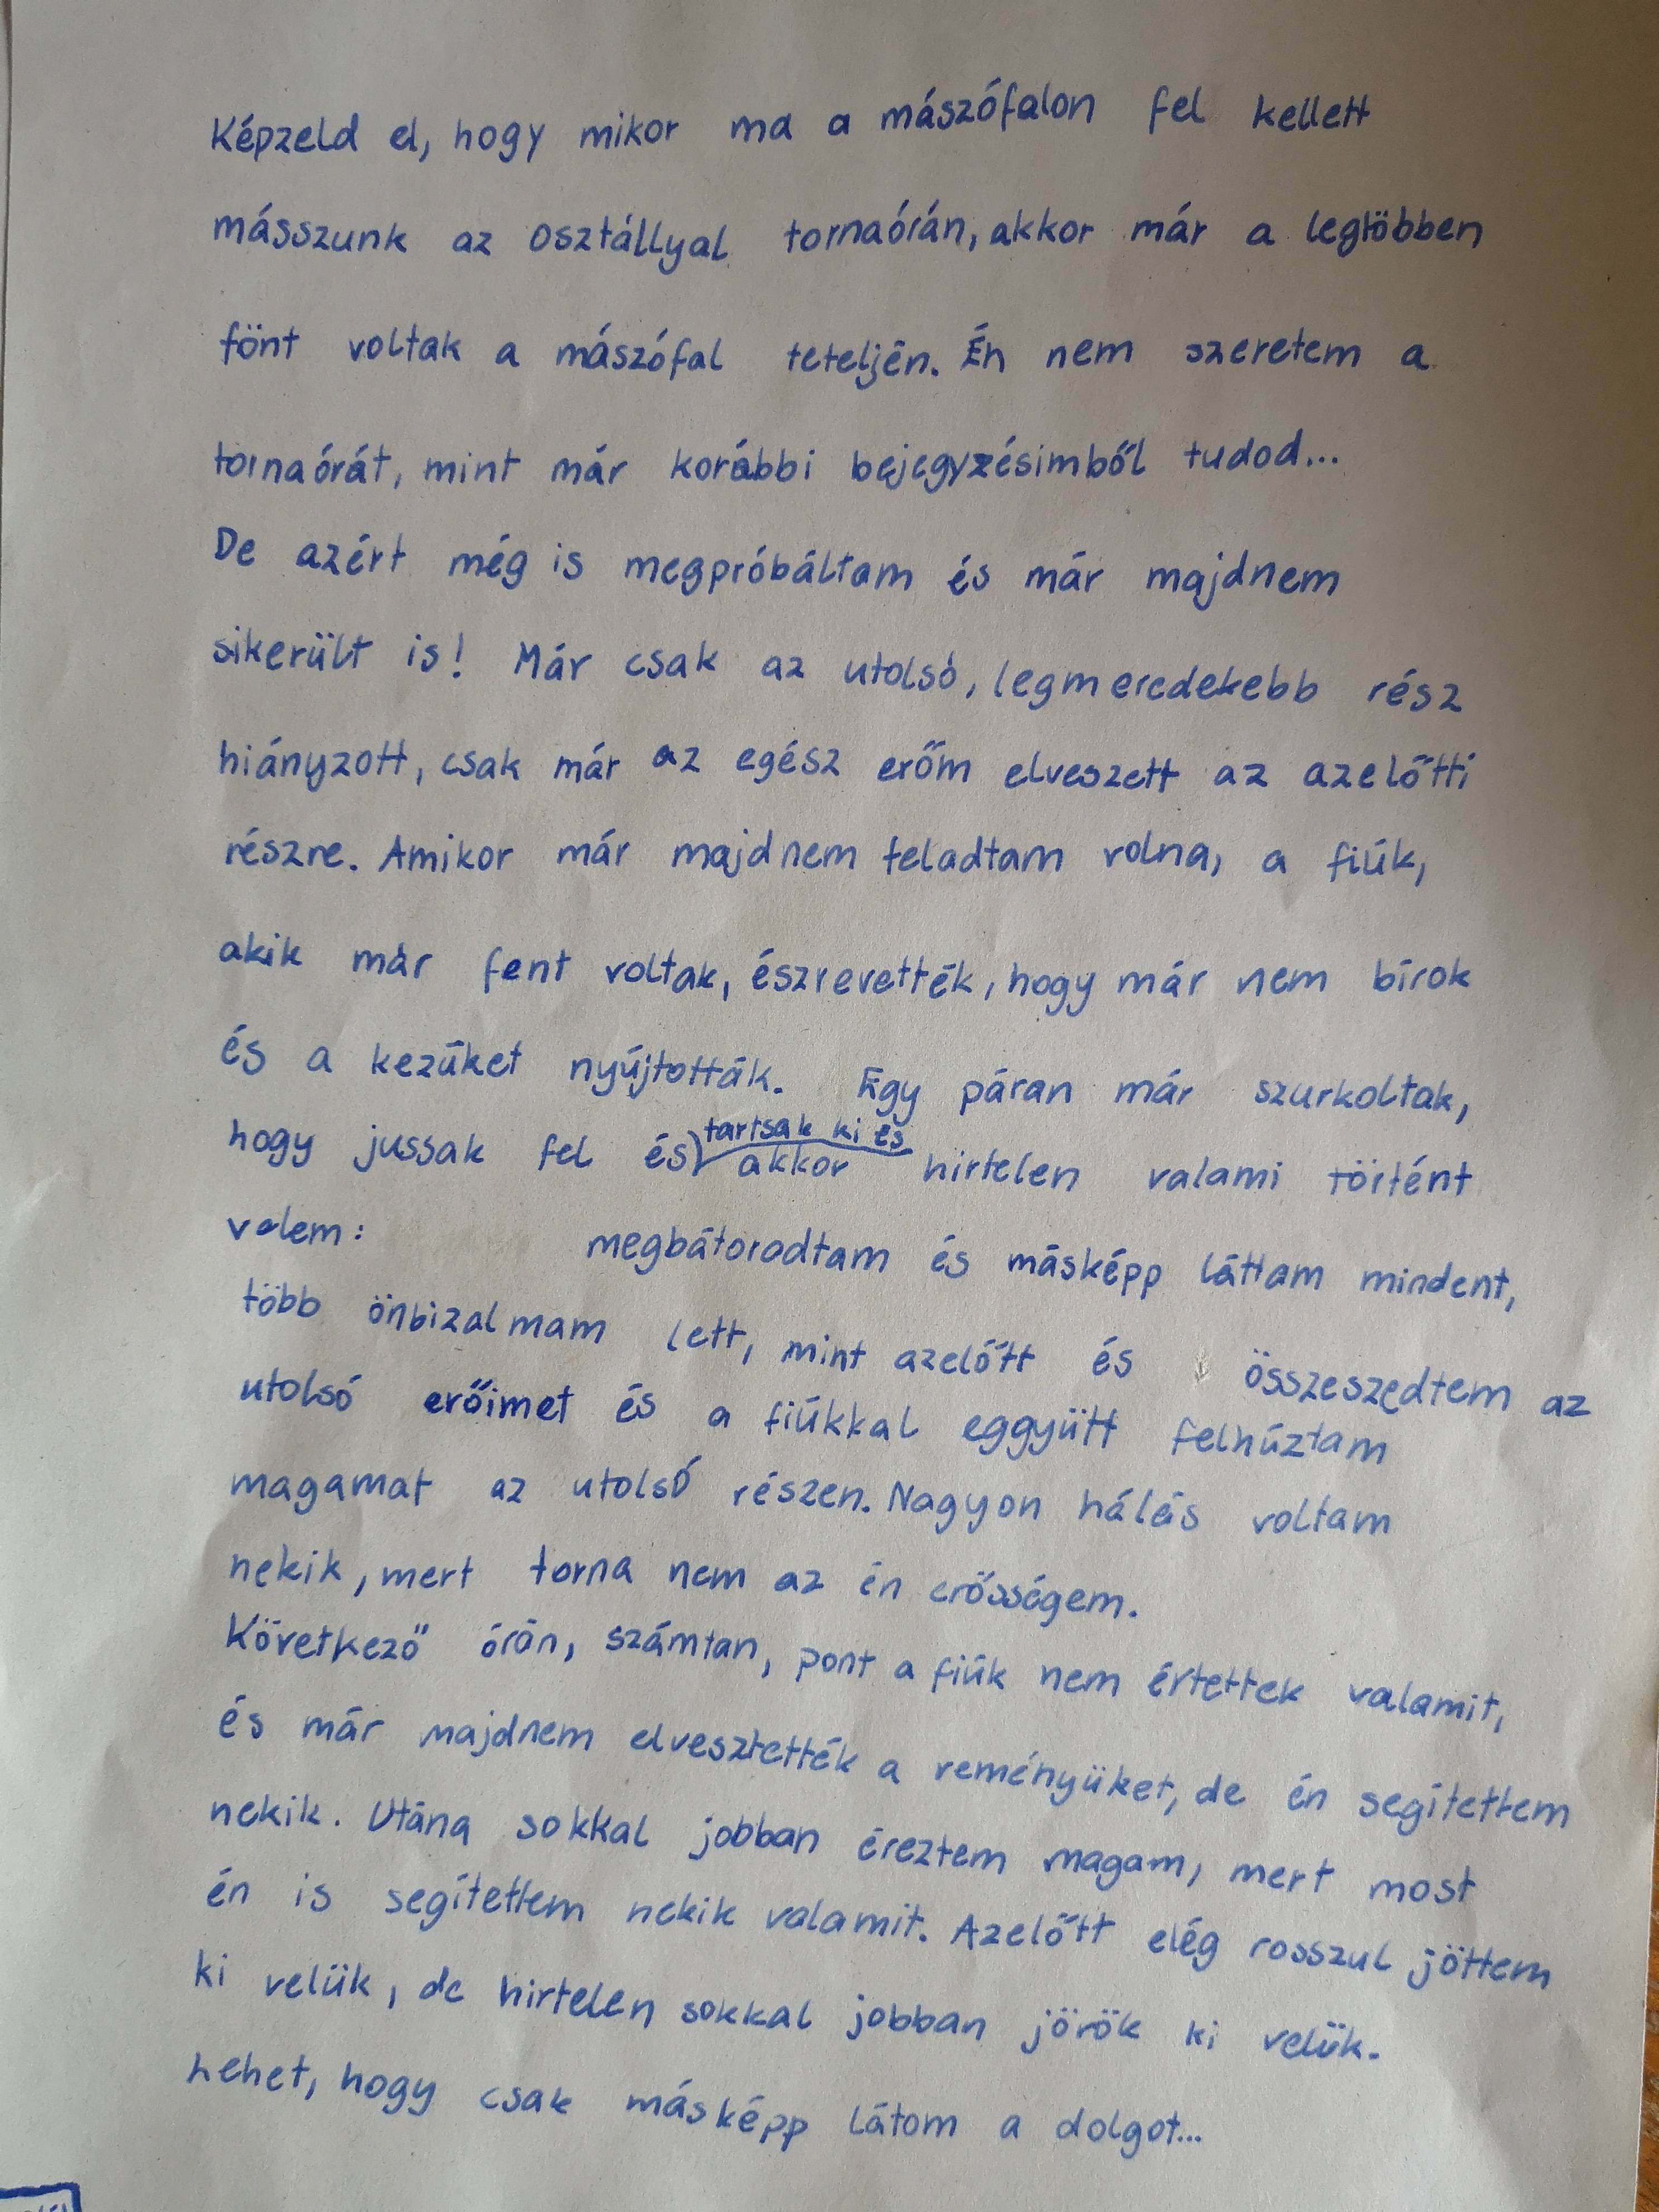 Képzeld el, hogy mikor ma a mászófalon fel kellett
másszunk az osztállyal tornaórán, akkor már a legtöbben
fönt voltak a mászófal teteljén. Én nem szeretem a
tornaórát, mint már korábbi bejegyzésimből tudod...
De azért még is megpróbáltam és már majdnem
sikerült is! Már csak az utolsó, legmeredekebb rész
hiányzott, csak már az egész erőm elveszett az azelőtti
részre. Amikor már majdnem feladtam volna, a fiúk,
akik már fent voltak, észrevették, hogy már nem bírok
és a kezüket nyújtották. Egy páran már szurkoltak,
hogy jussak fel és tartsak ki és akkor hirtelen valami történt
velem: megbátorodtam és másképp láttam mindent,
több önbizalmam lett, mint azelőtt és összeszedtem az
utolsó erőimet és a fiúkkal eggyütt felhúztam
magamat az utolsó részen. Nagyon hálás voltam
nekik, mert torna nem az én erősségem.
Következő órán, számtan, pont a fiúk nem értettek valamit,
és már majdnem elvesztették a reményüket, de én segítettem
nekik. Utána sokkal jobban éreztem magam, mert most
én is segítettem nekik valamit. Azelőtt elég rosszul jöttem
ki velük, de hirtelen sokkal jobban jörök ki velük.
Lehet, hogy csak másképp látom a dolgot...